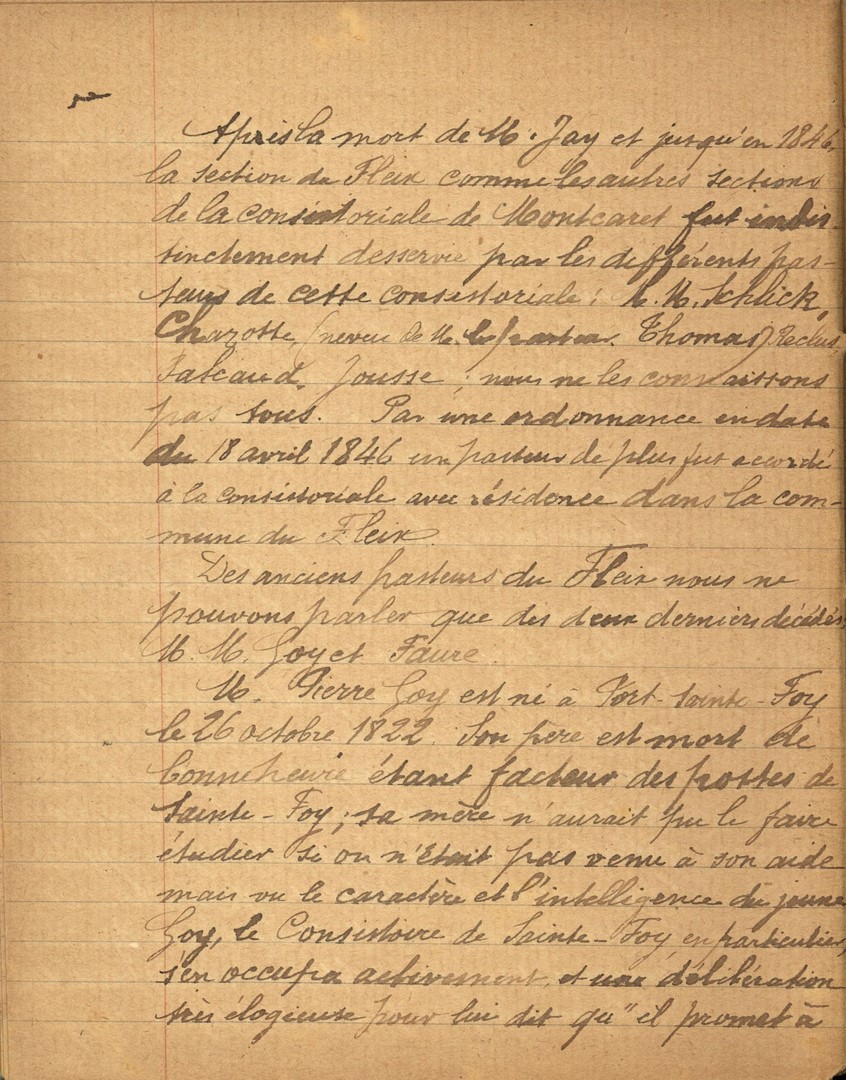 Après la mort de M. Jay et jusqu'en 1846,
la section du Fleix comme les autres sections
de la consistoriale de Montcaret fut indis-
tinctement desservie par les différents pas-
teurs de cette consistoriale : M. M. Schlick,
Charotte, (neveu de M. le pasteur Thomas) Reclus,
Falcaud, Jousse ; nous ne les connaissons
pas tous. Par une ordonnance en date
du 18 avril 1846 un pasteur de plus fut accordé
à la consistoriale avec résidence dans la com-
mune du Fleix.
Des anciens pasteurs du Fleix nous ne
pouvons parler que des deux derniers décédés,
M. M. Goy et Faure.
M. Pierre Goy est né à Port-Sainte-Foy
le 26 octobre 1822. Son père est mort de
bonne heure étant facteur des postes de
Sainte-Foy ; sa mère n'aurait pu le faire
étudier si on n'était pas venu à son aide
mais vu le caractère et l'intelligence du jeune
Goy, le Consistoire de Sainte-Foy en particulier,
s'en occupa activement, et une délibération
très élogieuse pour lui dit qu'"il promet à